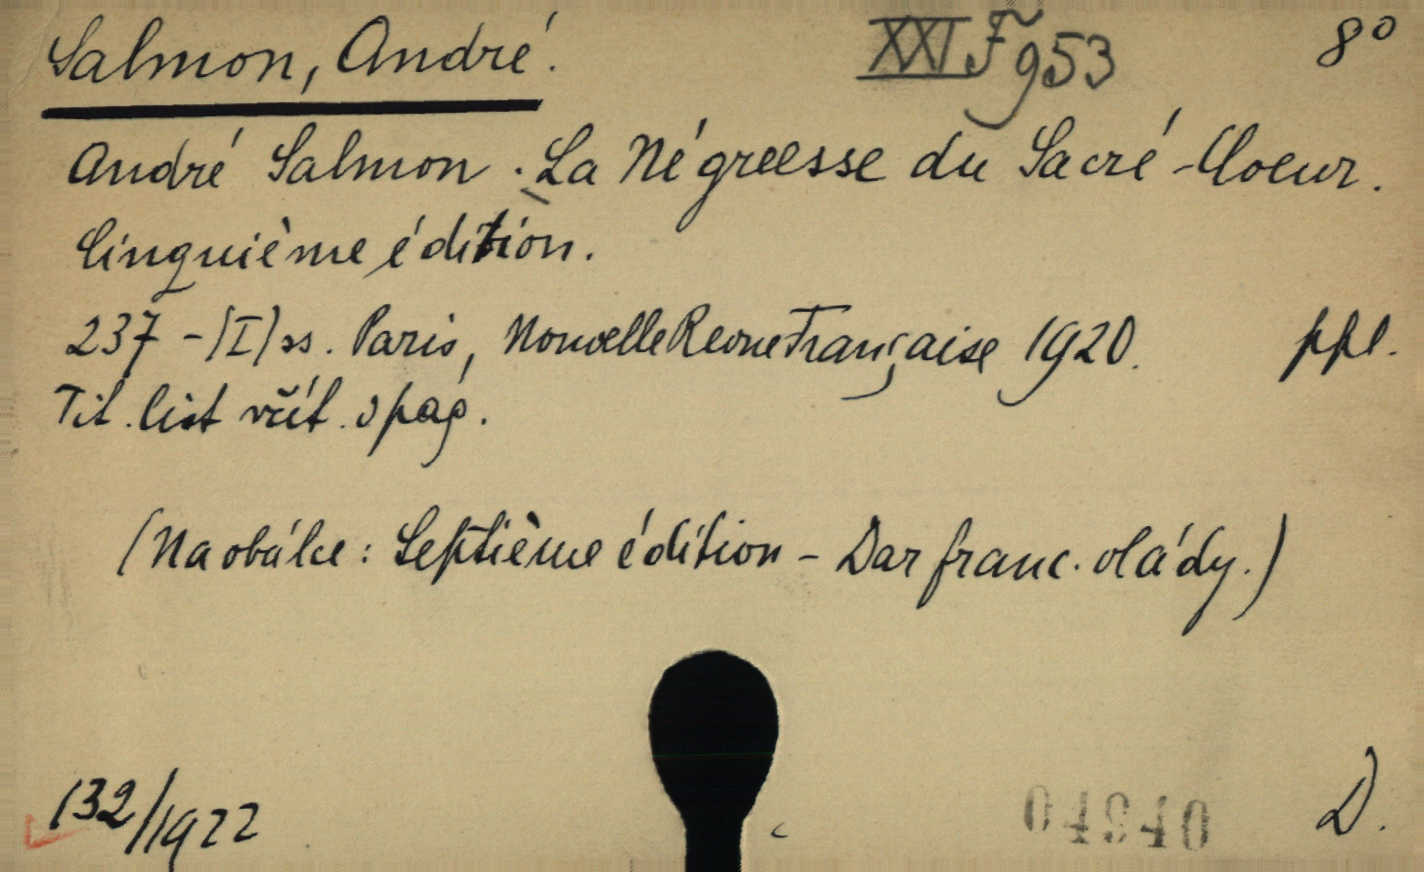 Salmon, André. XXI F 953 8°
André Salmon. La Négreesse du Sacré-Coeur.
Cinquième édition.
237 - (I) ss. Paris, Nouvelle Revue Française 1920. ppl.
Tit. list včít. v pag.
(Na obálce: Septième édition - Dar franc. vlády.)
132/1922 D.